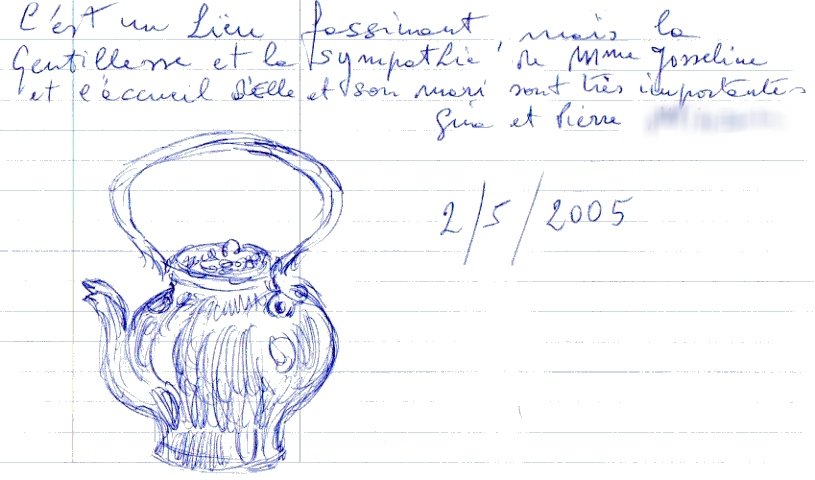 C'est un Lieu fassinant, mais la
Gentillesse et la sympathie, de Mme Josseline
et l'accueil d'Elle et son mari sont très importantes
Gina et Pierre
2/5/2005